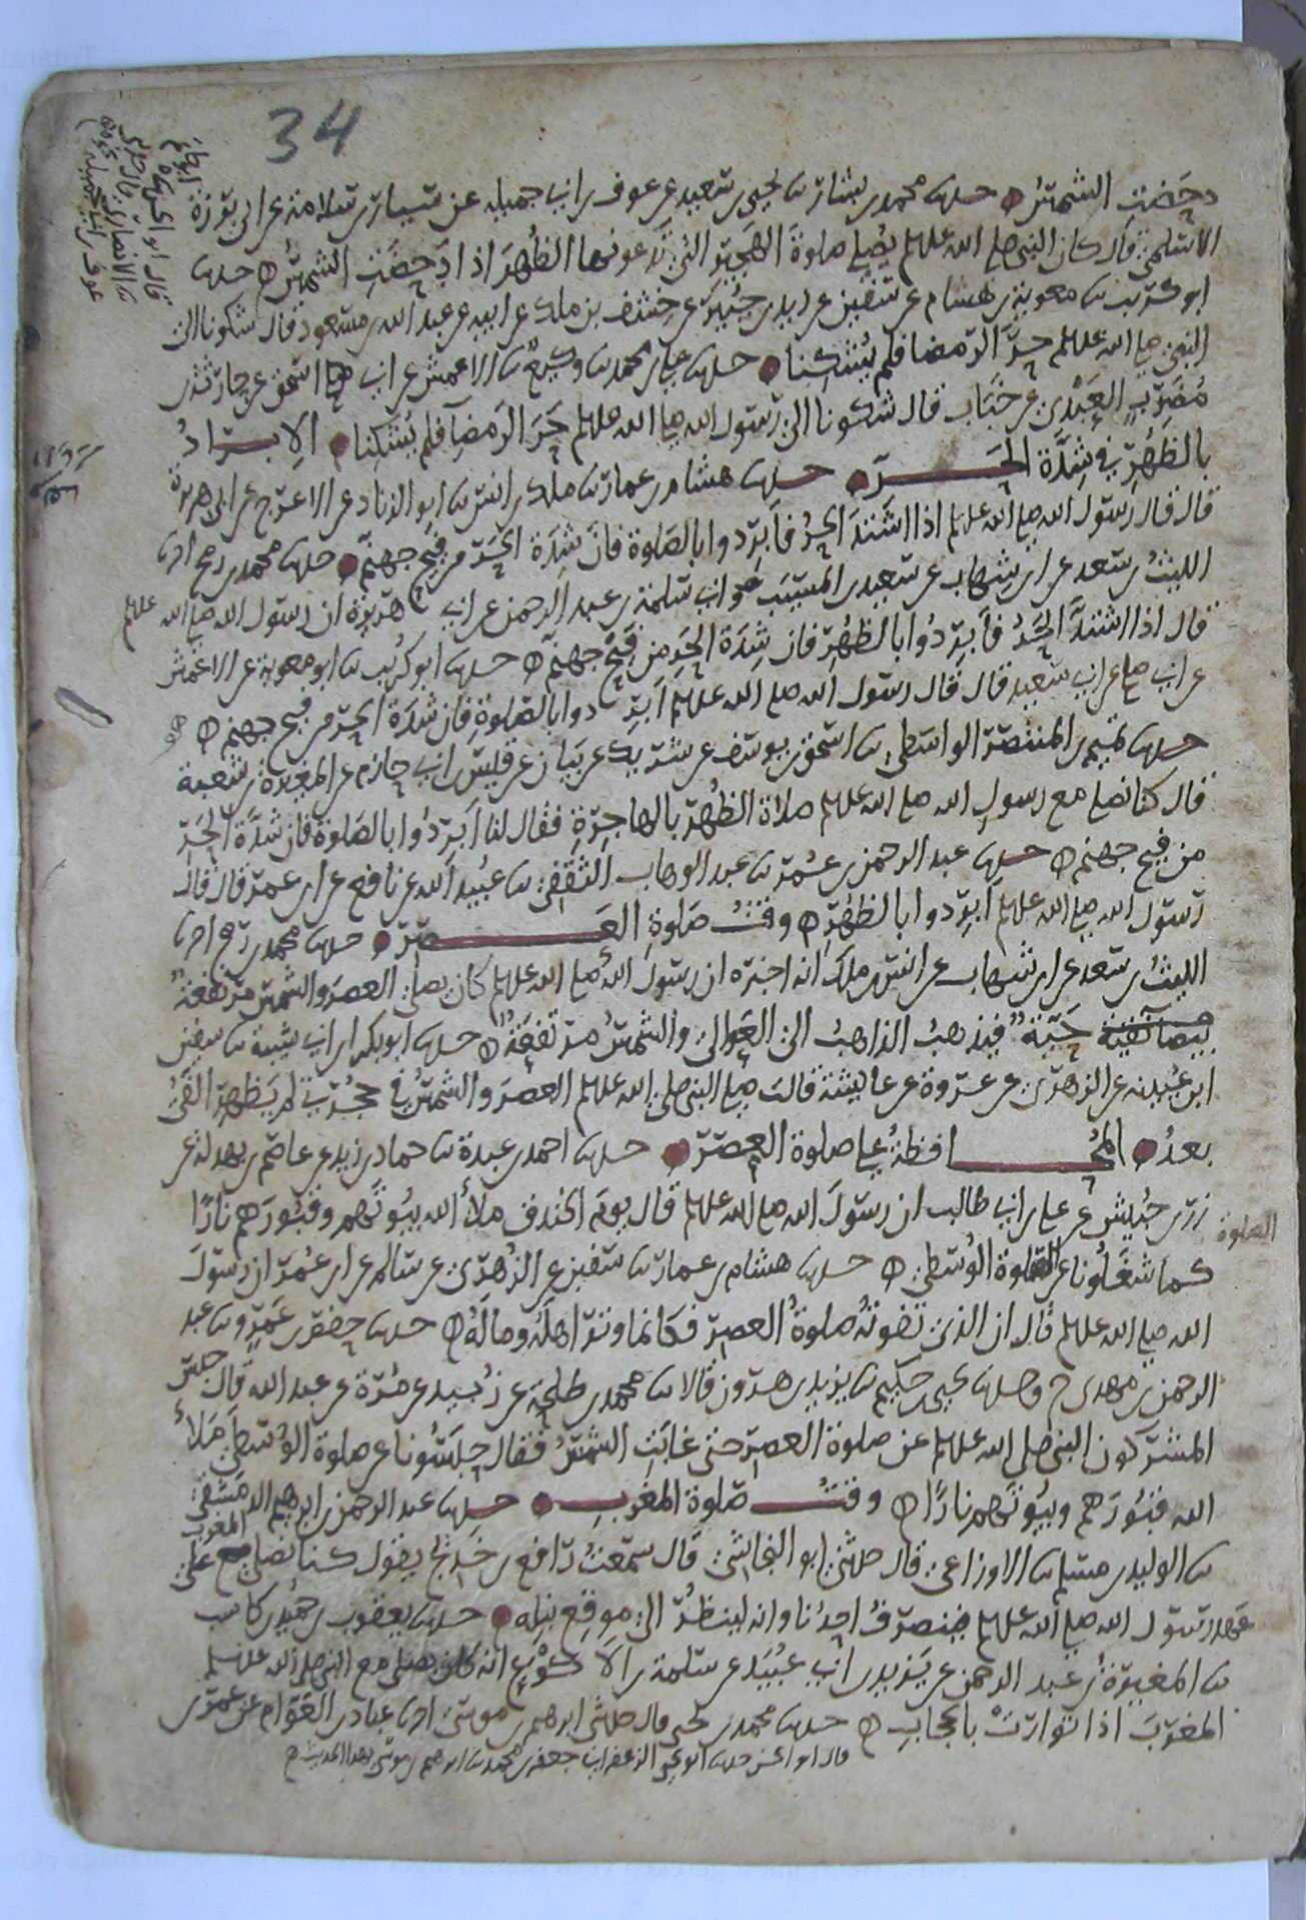 34
دحضت الشمس حدثنا محمد بن بشار ثنا يحيى بن سعيد عن عوف بن ابي جميله عن سيار بن سلامة عن ابي برزة
الاسلمي قال كان النبي صلى الله عليه وسلم يصلي صلوة الهجير التي تدعونها الظهر اذا دحضت الشمس حدثنا
ابو كريب ثنا معوية بن هشام عن سفين عن زيد بن جبيرة عن خشف بن ملك عن ابيه عن عبد الله بن مسعود قال شكونا الى
النبي صلى الله عليه وسلم حر الرمضا فلم يشكنا حدثنا علي بن محمد ثنا وكيع ثنا الاعمش عن ابي اسحق عن حارثة بن
مضرب العبدي عن خباب قال شكونا الى رسول الله صلى الله عليه وسلم حر الرمضا فلم يشكنا الابراد
بالظهر في شدة الحر حدثنا هشام بن عمار ثنا ملك بن انس ثنا ابو الزناد عن الاعرج عن ابي هريرة
قال قال رسول الله صلى الله عليه وسلم اذا اشتد الحر فابردوا بالصلوة فان شدة الحر من فيح جهنم حدثنا محمد بن رمح اخبرنا
الليث بن سعد عن ابن شهاب عن سعيد بن المسيب وابي سلمة بن عبد الرحمن عن ابي هريرة ان رسول الله صلى الله عليه وسلم
قال اذا اشتد الحر فابردوا بالظهر فان شدة الحر من فيح جهنم حدثنا ابو كريب ثنا ابو معوية عن الاعمش
عن ابي صلح عن ابي سعيد قال قال رسول الله صلى الله عليه وسلم ابردوا بالصلوة فان شدة الحر من فيح جهنم
حدثنا تميم بن المنتصر الواسطي ثنا اسحق بن يوسف عن شريك عن بيان عن قيس بن ابي حازم عن المغيرة بن شعبة
قال كنا نصلي مع رسول الله صلى الله عليه وسلم صلاة الظهر بالهاجرة فقال لنا ابردوا بالصلوة فان شدة الحر
من فيح جهنم حدثنا عبد الرحمن بن عمر ثنا عبد الوهاب الثقفي ثنا عبيد الله عن نافع عن ابن عمر قال قال
رسول الله صلى الله عليه وسلم ابردوا بالظهر وقت صلوة العصر حدثنا محمد بن رمح اخبرنا
الليث بن سعد عن ابن شهاب عن انس بن ملك انه اخبره ان رسول الله صلى الله عليه وسلم كان يصلي العصر والشمس مرتفعة
حية فيذهب الذاهب الى العوالي والشمس مرتفعة حدثنا ابو بكر بن ابي شيبة ثنا سفين
ابن عيينه عن الزهري عن عروة عن عائشة قالت صلى النبي صلى الله عليه وسلم العصر والشمس في حجرتي لم يظهر الفي
بعد المحافظة على صلوة العصر حدثنا احمد بن عبدة ثنا حماد بن زيد عن عاصم بن بهدلة عن
زر بن حبيش عن علي بن ابي طالب ان رسول الله صلى الله عليه وسلم قال يوم الخندق ملأ الله بيوتهم وقبورهم نارا
كما شغلونا عن الصلوة الوسطى حدثنا هشام بن عمار ثنا سفين عن الزهري عن سالم عن ابن عمر ان رسول
الصلوة
الله صلى الله عليه وسلم قال ان الذي تفوته صلوة العصر فكانما وتر اهله وماله حدثنا حفص بن عمرو ثنا عبد
الرحمن بن مهدي ح وحدثنا يحيى بن حكيم ثنا يزيد بن هرون قالا ثنا محمد بن طلحة عن زبيد عن مرة عن عبد الله قال حبس
المشركون النبي صلى الله عليه وسلم عن صلوة العصر حتى غابت الشمس فقال حبسونا عن صلوة الوسطى ملأ
الله قبورهم وبيوتهم نارا وقت صلوة المغرب حدثنا عبد الرحمن بن ابرهيم الدمشقي
ثنا الوليد بن مسلم ثنا الاوزاعي قال حدثني ابو النجاشي قال سمعت رافع بن خديج يقول كنا نصلي المغرب على
عهد رسول الله صلى الله عليه وسلم فينصرف احدنا وانه لينظر الى موقع نبله حدثنا يعقوب بن حميد بن كاسب
ثنا المغيرة بن عبد الرحمن عن يزيد بن ابي عبيد عن سلمة بن الاكوع انه كان يصلي مع النبي صلى الله عليه وسلم
المغرب اذا توارت بالحجاب حدثنا محمد بن يحيى قال حدثني ابرهيم بن موسى اخبرنا عباد بن العوام عن عمر بن
قال ابو الحسن حدثنا ابو يحيى الزعفراني جعفر بن محمد ثنا ابرهيم بن موسى بهذا الحديث